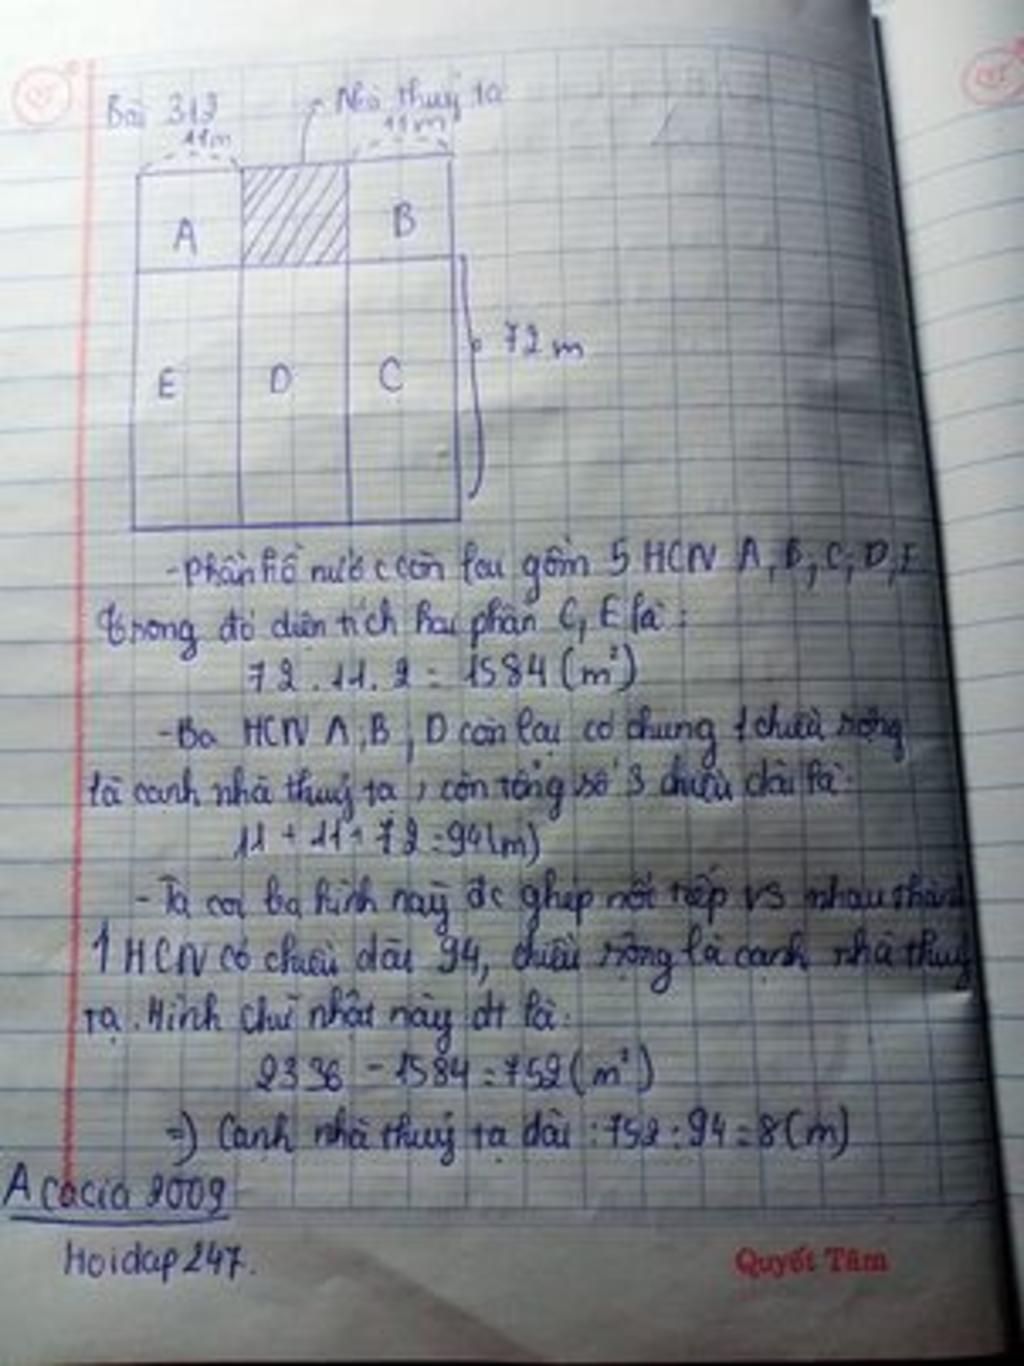 Bài 313
Nhà thuỷ tạ
11m
11m
A
B
72 m
E
D
C
- Phần hồ nước còn lại gồm 5 HCN A, B, C, D, E
trong đó diện tích hai phần C, E là :
72 . 11 . 2 = 1584 (m²)
- Ba HCN A, B, D còn lại có chung 1 chiều rộng
là cạnh nhà thuỷ tạ, còn tổng số 3 chiều dài là:
11 + 11 + 72 = 94(m)
- Ta coi ba hình này đc ghép nối tiếp vs nhau thành
1 HCN có chiều dài 94, chiều rộng là cạnh nhà thuỷ
tạ. Hình chữ nhật này dt là:
2336 - 1584 = 752 (m²)
=) Cạnh nhà thuỷ tạ dài : 752 : 94 = 8 (m)
Acacia 2009
Hoidap247.
Quyết Tâm